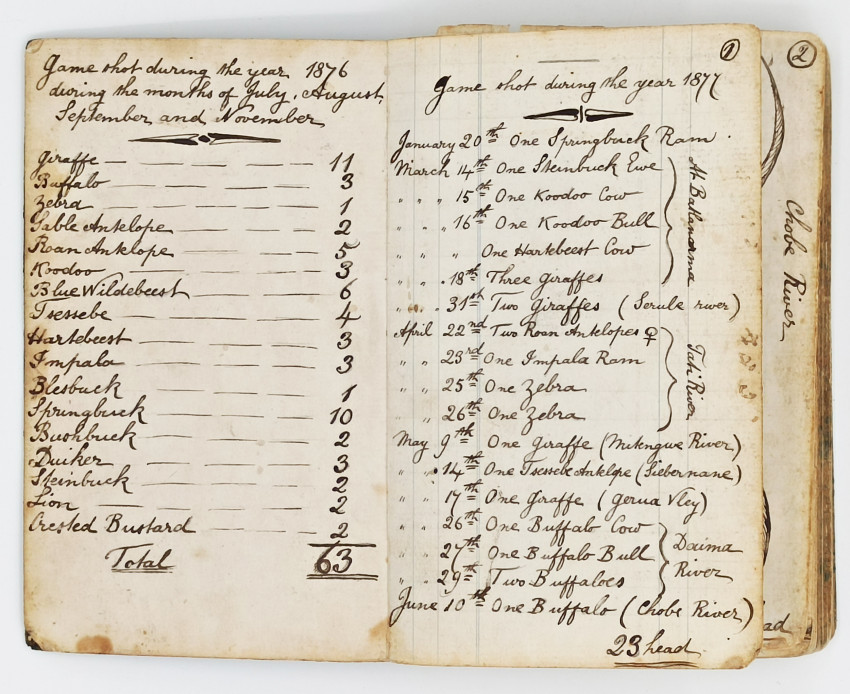 Game shot during the year 1876
during the months of July, August,
September and November
Giraffe — 11
Buffalo — 3
Zebra — 1
Sable Antelope — 2
Roan Antelope — 5
Koodoo — 3
Blue Wildebeest — 6
Tsessebe — 4
Hartebeest — 3
Impala — 3
Blesbuck — 1
Springbuck — 10
Bushbuck — 2
Duiker — 3
Steinbuck — 2
Lion — 2
Crested Bustard — 2
Total 63
1
Game shot during the year 1877
January 20th One Springbuck Ram.
March 14th One Steinbuck Ewe
" " 15th One Koodoo Cow
" " 16th One Koodoo Bull
" " " One Hartebeest Cow
" " 18th Three Giraffes
At Ballanarma
" " 31st Two Giraffes (Serule river)
April 22nd Two Roan Antelopes ♀
" " 23rd One Impala Ram
" " 25th One Zebra
" " 26th One Zebra
Tati River
May 9th One Giraffe (Mitengue River)
" " 14th One Tsessebe Antelope (Siebernane)
" " 17th One Giraffe (Gerua Vley)
" " 26th One Buffalo Cow
" " 27th One Buffalo Bull
" " 29th Two Buffaloes
Daima
River
June 10th One Buffalo (Chobe River)
23 head
2
Chobe River